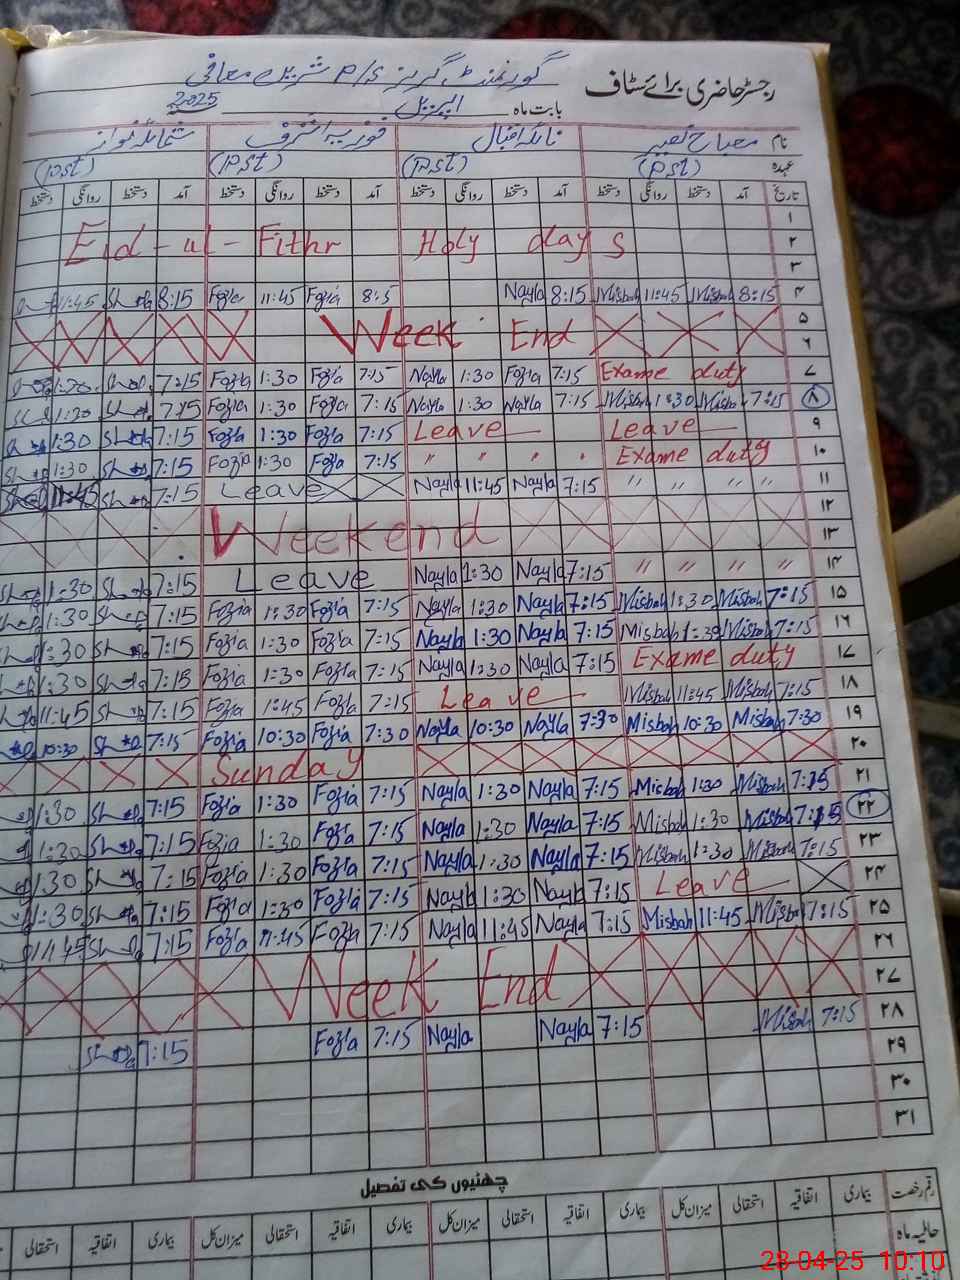 رجسٹر حاضری برائے سٹاف
گورنمنٹ گرلز
بابت ماہ اپریل 2025
نام مصباح نصیر نائلہ اقبال فوزیہ اشرف شمائلہ نواز
عہدہ (PST) (PST) (PST) (PST)
تاریخ آمد دستخط روانگی دستخط آمد دستخط روانگی دستخط آمد دستخط روانگی دستخط آمد دستخط روانگی دستخط
۱
۲ Eid-ul-Fithr Holy days
۳
۴ 8:15 Misbah 11:45 Misbah 8:15 Nayla 8:5 Fozia 11:45 Fozia 8:15 11:45
۵ Week End
۶
۷ Exame duty 7:15 Fozia 1:30 Nayla 7:15 Fozia 1:30 Fozia 7:15 1:30
۸ 7:15 Misbah 1:30 Misbah 7:15 Nayla 1:30 Nayla 7:15 Fozia 1:30 Fozia 7:15 1:30
۹ Leave Leave 7:15 Fozia 1:30 Fozia 7:15 1:30
۱۰ Exame duty " " " " 7:15 Fozia 1:30 Fozia 7:15 1:30
۱۱ " " " " 7:15 Nayla 11:45 Nayla Leave 7:15 11:45
۱۲ Weekend
۱۳
۱۴ " " " " 7:15 Nayla 1:30 Nayla Leave 7:15 1:30
۱۵ 7:15 Misbah 1:30 Misbah 7:15 Nayla 1:30 Nayla 7:15 Fozia 1:30 Fozia 7:15 1:30
۱۶ 7:15 Misbah 1:30 Misbah 7:15 Nayla 1:30 Nayla 7:15 Fozia 1:30 Fozia 7:15 1:30
۱۷ Exame duty 7:15 Nayla 1:30 Nayla 7:15 Fozia 1:30 Fozia 7:15 1:30
۱۸ 7:15 Misbah 11:45 Misbah Leave 7:15 Fozia 1:45 Fozia 7:15 11:45
۱۹ 7:30 Misbah 10:30 Misbah 7:30 Nayla 10:30 Nayla 7:30 Fozia 10:30 Fozia 7:15 10:30
۲۰ Sunday
۲۱ 7:15 Misbah 1:30 Misbah 7:15 Nayla 1:30 Nayla 7:15 Fozia 1:30 Fozia 7:15 1:30
۲۲ 7:15 Misbah 1:30 Misbah 7:15 Nayla 1:30 Nayla 7:15 Fozia 1:30 Fozia 7:15 1:30
۲۳ 7:15 Misbah 1:30 Misbah 7:15 Nayla 1:30 Nayla 7:15 Fozia 1:30 Fozia 7:15 1:30
۲۴ Leave 7:15 Nayla 1:30 Nayla 7:15 Fozia 1:30 Fozia 7:15 1:30
۲۵ 7:15 Misbah 11:45 Misbah 7:15 Nayla 11:45 Nayla 7:15 Fozia 11:45 Fozia 7:15 11:45
۲۶ Week End
۲۷
۲۸ 7:15 Misbah 7:15 Nayla Nayla 7:15 Fozia 7:15
۲۹
۳۰
۳۱
چھٹیوں کی تفصیل
رقم رخصت بیماری اتفاقیہ استحقالی میزان کل بیماری اتفاقیہ استحقالی میزان کل بیماری اتفاقیہ استحقالی میزان کل بیماری اتفاقیہ استحقالی
حالیہ ماہ
28-04-25 10:10